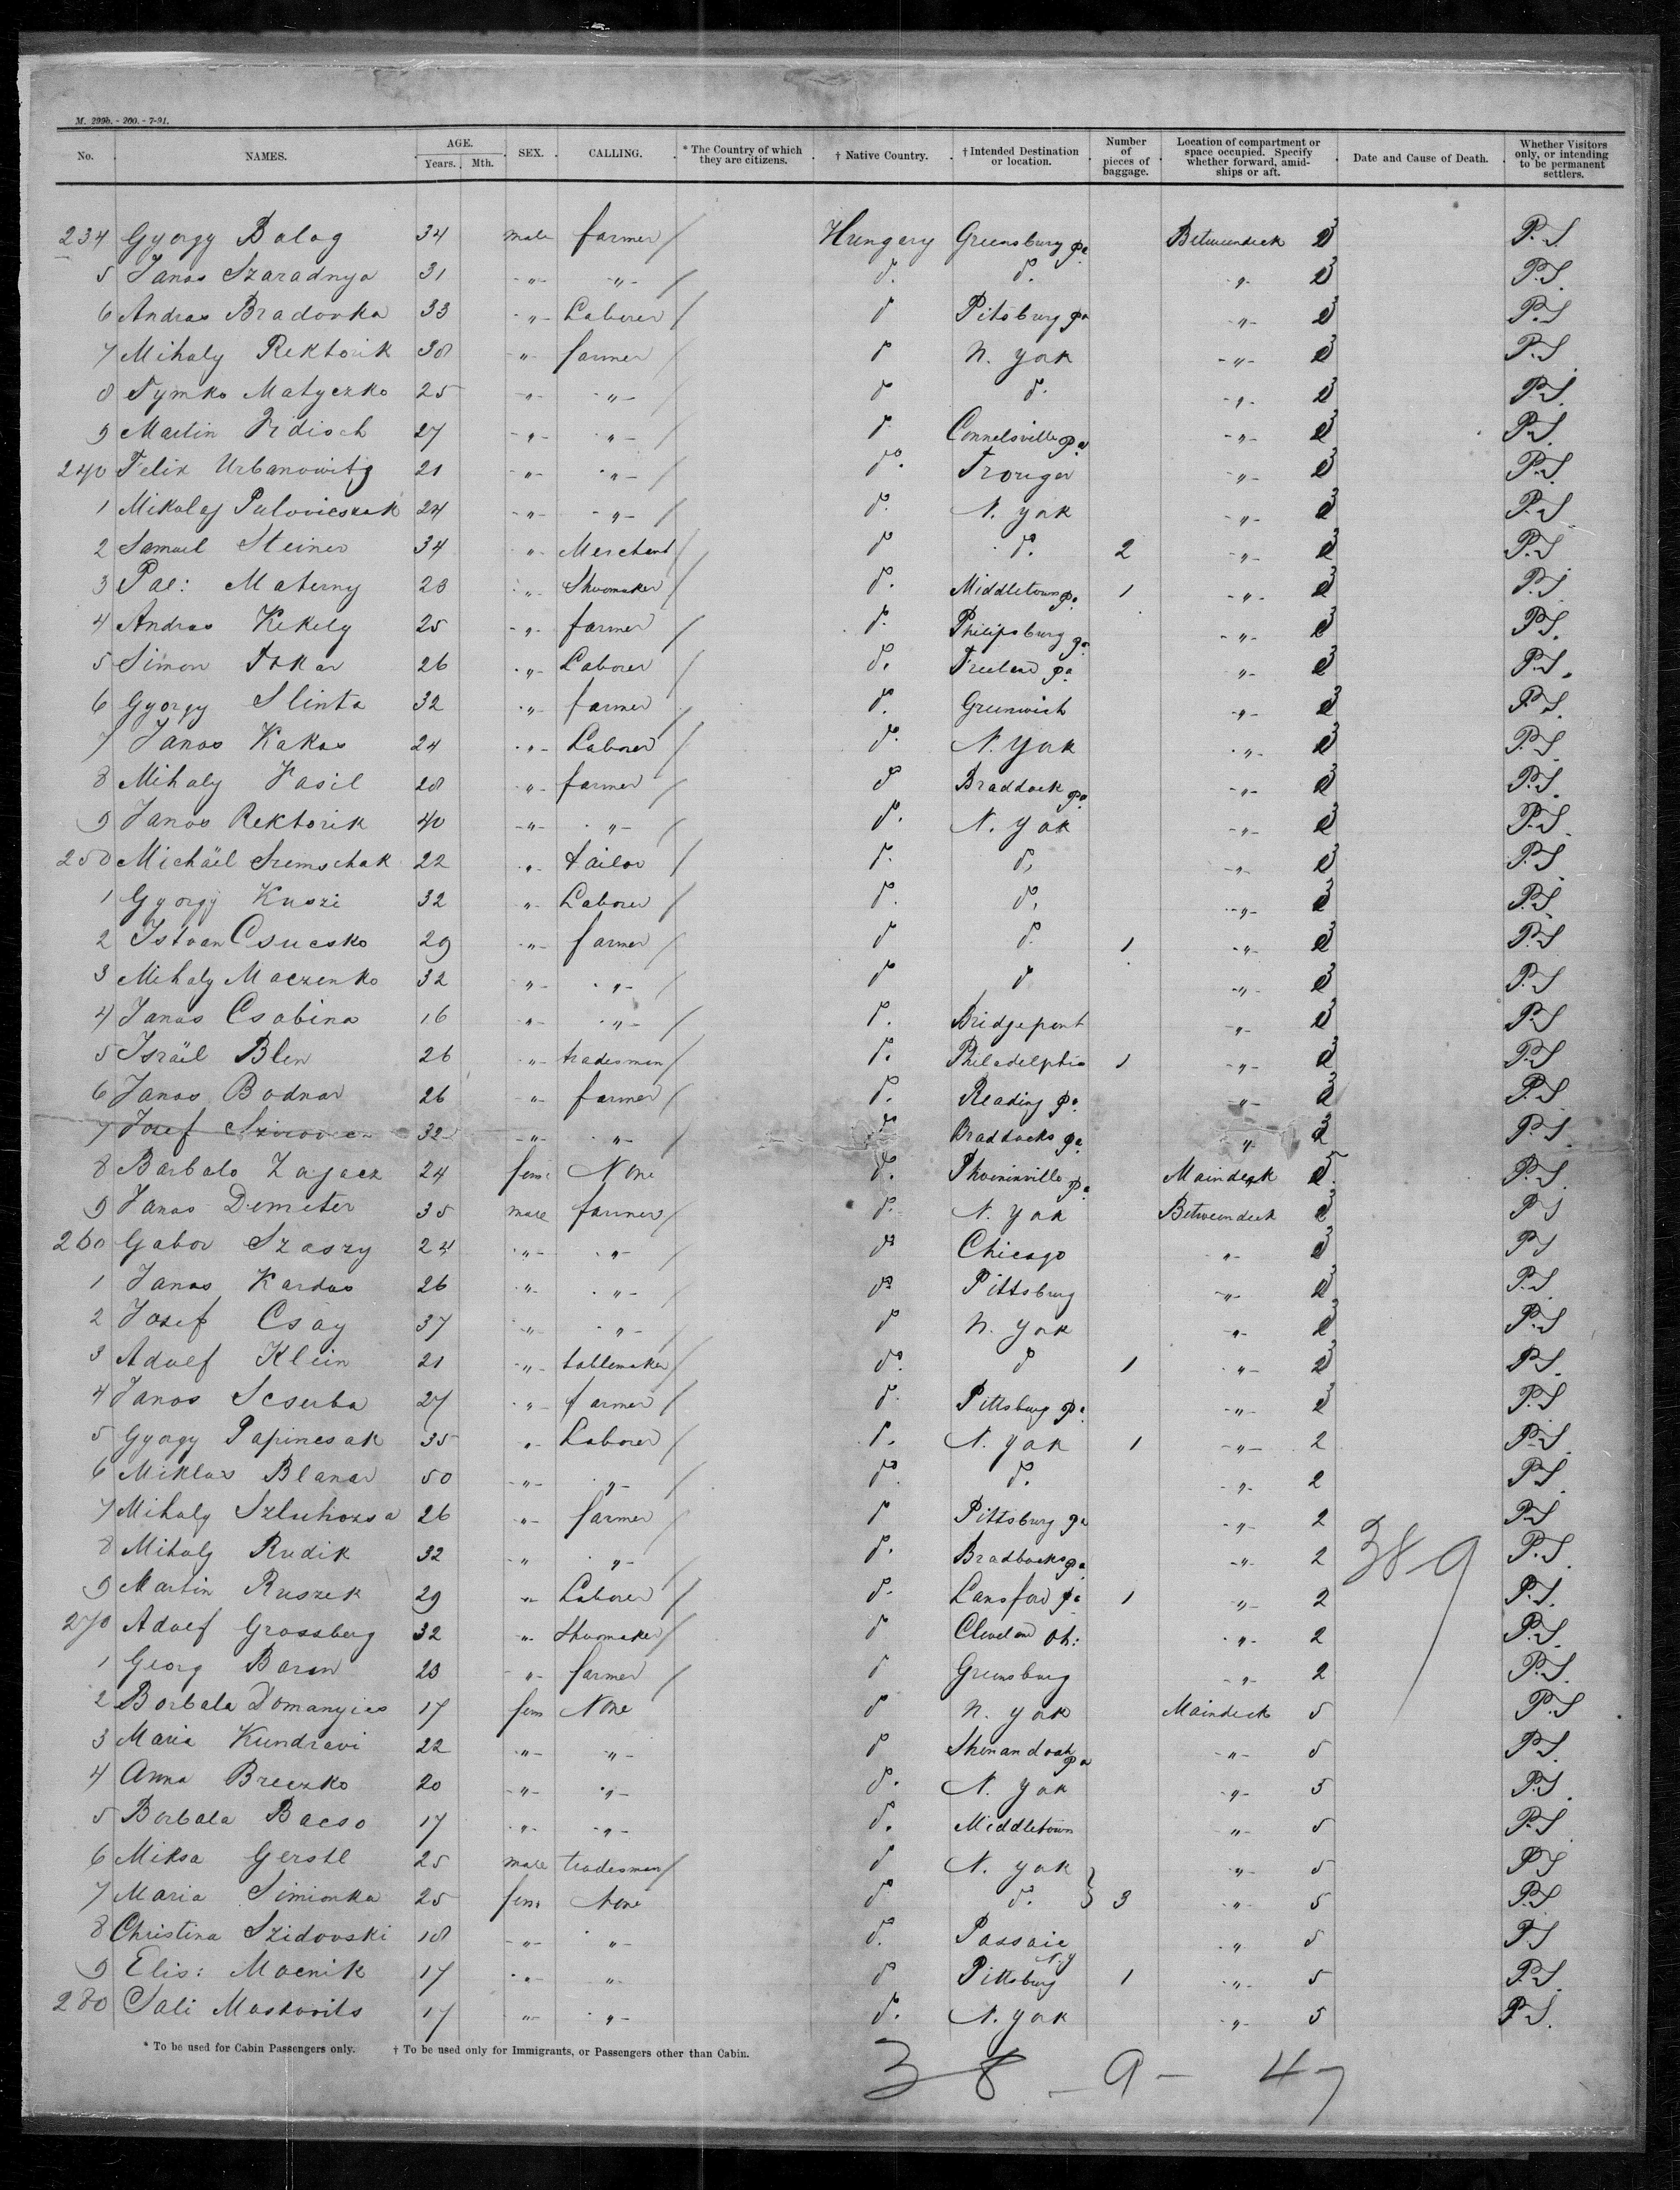 M. 299b. - 200. - 7-91.
No. NAMES. AGE. Years. Mth. SEX. CALLING. * The Country of which they are citizens. † Native Country. † Intended Destination or location. Number of pieces of baggage. Location of compartment or space occupied. Specify whether forward, amidships or aft. Date and Cause of Death. Whether Visitors only, or intending to be permanent settlers.
234 Gyorgy Balog 34 male farmer / Hungary Greensburg Pa Betweendeck 3 P.S.
5 Janos Szaradnya 31 -"- -"- / d. d. -"- 3 P.S.
6 Andras Bradovka 33 -"- Laborer / d Pitsburg Pa -"- 3 P.S
7 Mihaly Rektorik 38 -"- farmer / d N. York -"- 3 P.S
8 Tymko Matyczko 25 -"- -"- / d d. -"- 3 P.S.
9 Martin 27 -"- -"- / d Connelsville Pa -"- 3 P.S.
240 Felix Urbanowitz 21 -"- -"- / d. Trouger -"- 3 P.S.
1 Mikolaj Pulovicszak 24 -"- -"- / d. N. York -"- 3 P.S
2 Samuel Steiner 34 -"- Merchant / d d. 2 -"- 3 P.S
3 Pal: Materny 23 -"- Shoomaker / d. Middletown Pa 1 -"- 3 P.S.
4 Andras Kekely 25 -"- farmer / d. Philipsburg Pa -"- 3 P.S.
5 Simon Tokar 26 -"- Laborer / d. Freeland Pa -"- 3 P.S.
6 Gyorgy Slinta 32 -"- farmer / d. Greenwich -"- 3 P.S.
7 Janos Kakas 24 -"- Laborer / d. N. York -"- 3 P.S.
8 Mihaly Vasil 28 -"- farmer / d Braddock Pa -"- 3 P.S.
9 Janos Rektorik 40 -"- -"- / d. N. York -"- 3 P.S.
250 Michäel Szemschak 22 -"- tailor / d. d. -"- 3 P.S.
1 Gyorgy Kuszi 32 -"- Laborer / d. d. -"- 3 P.S.
2 Istvan Csucsko 29 -"- farmer / d d. 1 -"- 3 P.S
3 Mihaly Maczenko 32 -"- -"- / d d -"- 3 P.S
4 Janos Csabina 16 -"- -"- / d. Bridgeport -"- 3 P.S
5 Israël Blen 26 -"- tradesman / d. Philadelphia 1 -"- 3 P.S
6 Janos Bodnar 26 -"- farmer / d. Reading Pa. -"- 3 P.S
7 Josef 32 -"- -"- / d Braddocks Pa. -"- 3 P.S.
8 Barbala Zajacz 24 fem: None d. Phoeninville Pa Maindeck 5 P.S.
9 Janos Demeter 35 male farmer / d. N. York Betweendeck 3 P.S
260 Gabor Szaszy 24 -"- -"- / d Chicago -"- 3 P.S
1 Janos Kardos 26 -"- -"- / d Pittsburg -"- 3 P.S.
2 Josef Csay 37 -"- -"- / d N. York -"- 3 P.S
3 Adolf Klein 21 -"- tablemaker / d. d 1 -"- 3 P.S.
4 Janos Scserba 27 -"- farmer / d. Pittsburg Pa. -"- 3 P.S
5 Gyorgy Papincsak 35 -"- Laborer / d. N. York 1 -"- 2 P.S.
6 Miklos Blanar 50 -"- -"- / d. d. -"- 2 P.S.
7 Mihaly Szluhozsa 26 -"- farmer / d Pittsburg Pa -"- 2 P.S
8 Mihaly Rudik 32 -"- -"- / d. Bradbocks Pa -"- 2 P.S.
389
9 Martin Ruszek 29 -"- Laborer / d. Lansford Pa 1 -"- 2 P.S.
270 Adolf Grossberg 32 -"- Shoomaker / d Cleveland Oh: -"- 2 P.S.
1 Georg Baran 23 -"- farmer / d Greensburg -"- 2 P.S.
2 Borbala Domanyics 17 fem None d N. York Maindeck 5 P.S
3 Maria Kundravi 22 -"- -"- d Shenandoah Pa -"- 5 P.S.
4 Anna Breczko 20 -"- -"- d. N. York -"- 5 P.S.
5 Borbala Bacso 17 -"- -"- d. Middletown -"- 5 P.S
6 Miksa Gerstl 25 male tradesman / d N. York -"- 5 P.S
7 Maria Simionka 25 fem: None d d. } 3 -"- 5 P.S.
8 Christina Szidovski 18 -"- -"- d. Passaic N.J -"- 5 P.S
9 Elis: Macnik 17 -"- -"- d Pittsburg 1 -"- 5 P.S.
280 Sali Moskovits 17 -"- -"- d. N. York -"- 5 P.S.
* To be used for Cabin Passengers only. † To be used only for Immigrants, or Passengers other than Cabin.
38 - 9 - 47